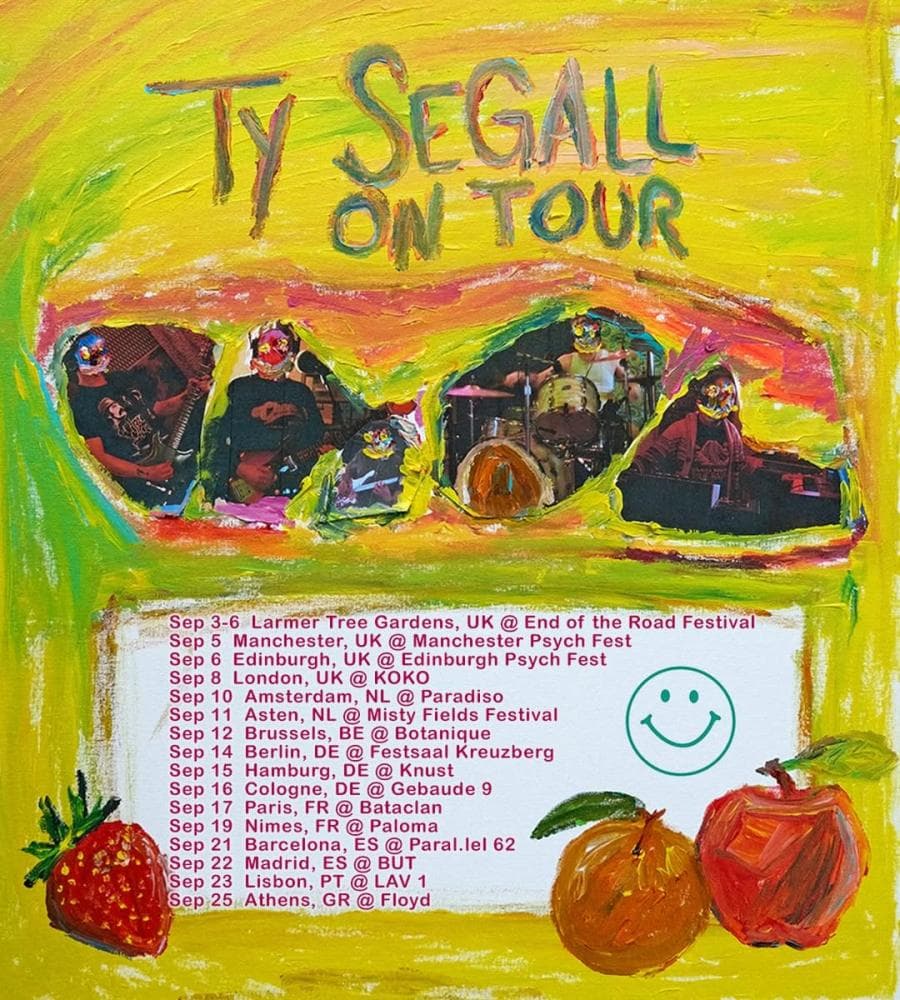 TY SEGALL
ON TOUR
Sep 3-6 Larmer Tree Gardens, UK @ End of the Road Festival
Sep 5 Manchester, UK @ Manchester Psych Fest
Sep 6 Edinburgh, UK @ Edinburgh Psych Fest
Sep 8 London, UK @ KOKO
Sep 10 Amsterdam, NL @ Paradiso
Sep 11 Asten, NL @ Misty Fields Festival
Sep 12 Brussels, BE @ Botanique
Sep 14 Berlin, DE @ Festsaal Kreuzberg
Sep 15 Hamburg, DE @ Knust
Sep 16 Cologne, DE @ Gebaude 9
Sep 17 Paris, FR @ Bataclan
Sep 19 Nimes, FR @ Paloma
Sep 21 Barcelona, ES @ Paral.lel 62
Sep 22 Madrid, ES @ BUT
Sep 23 Lisbon, PT @ LAV 1
Sep 25 Athens, GR @ Floyd